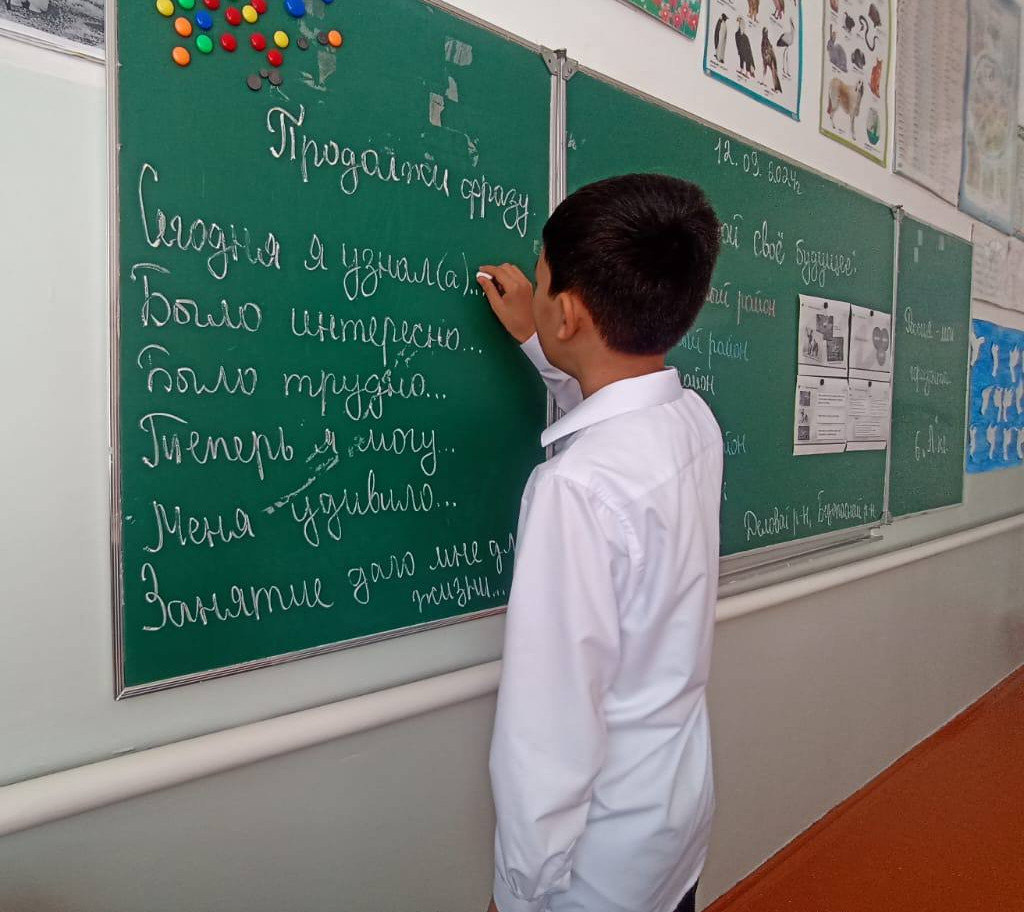 Продолжи фразу.
Сегодня я узнал(а)...
Было интересно...
Было трудно...
Теперь я могу...
Меня удивило...
Занятие дало мне для
жизни...
12.09.2024г
своё будущее".
район
район
район
Деловой р-н, Безопасный р-н
Россия - мои
6 "А" кл.